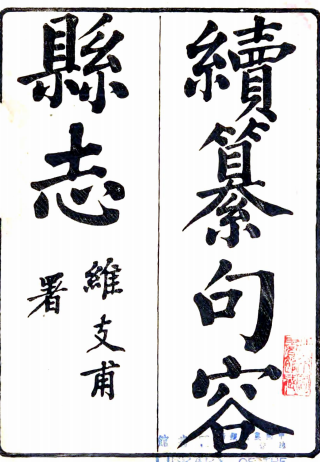 續纂句容
縣志
維支甫
署